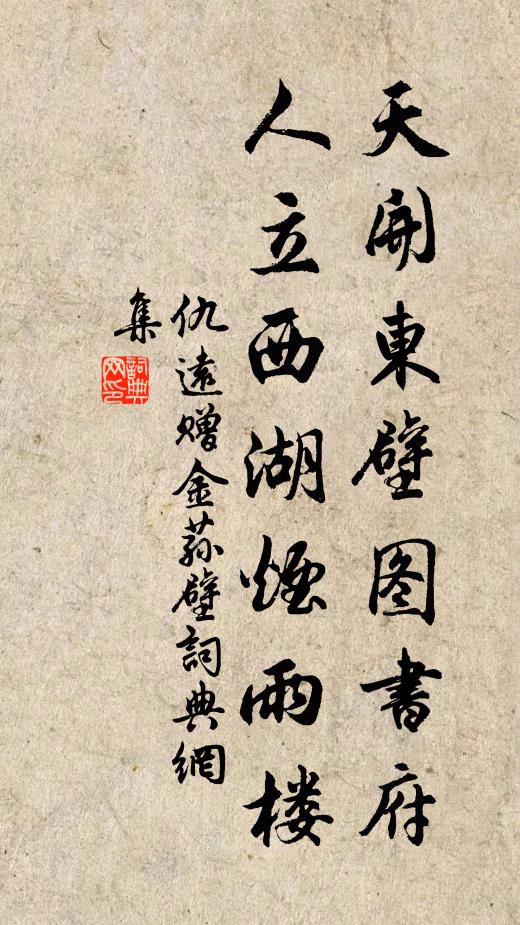 天開東壁图書府
人立西湖煙雨楼
仇遠贈金蓀壁詞典網
集
詞典
网印